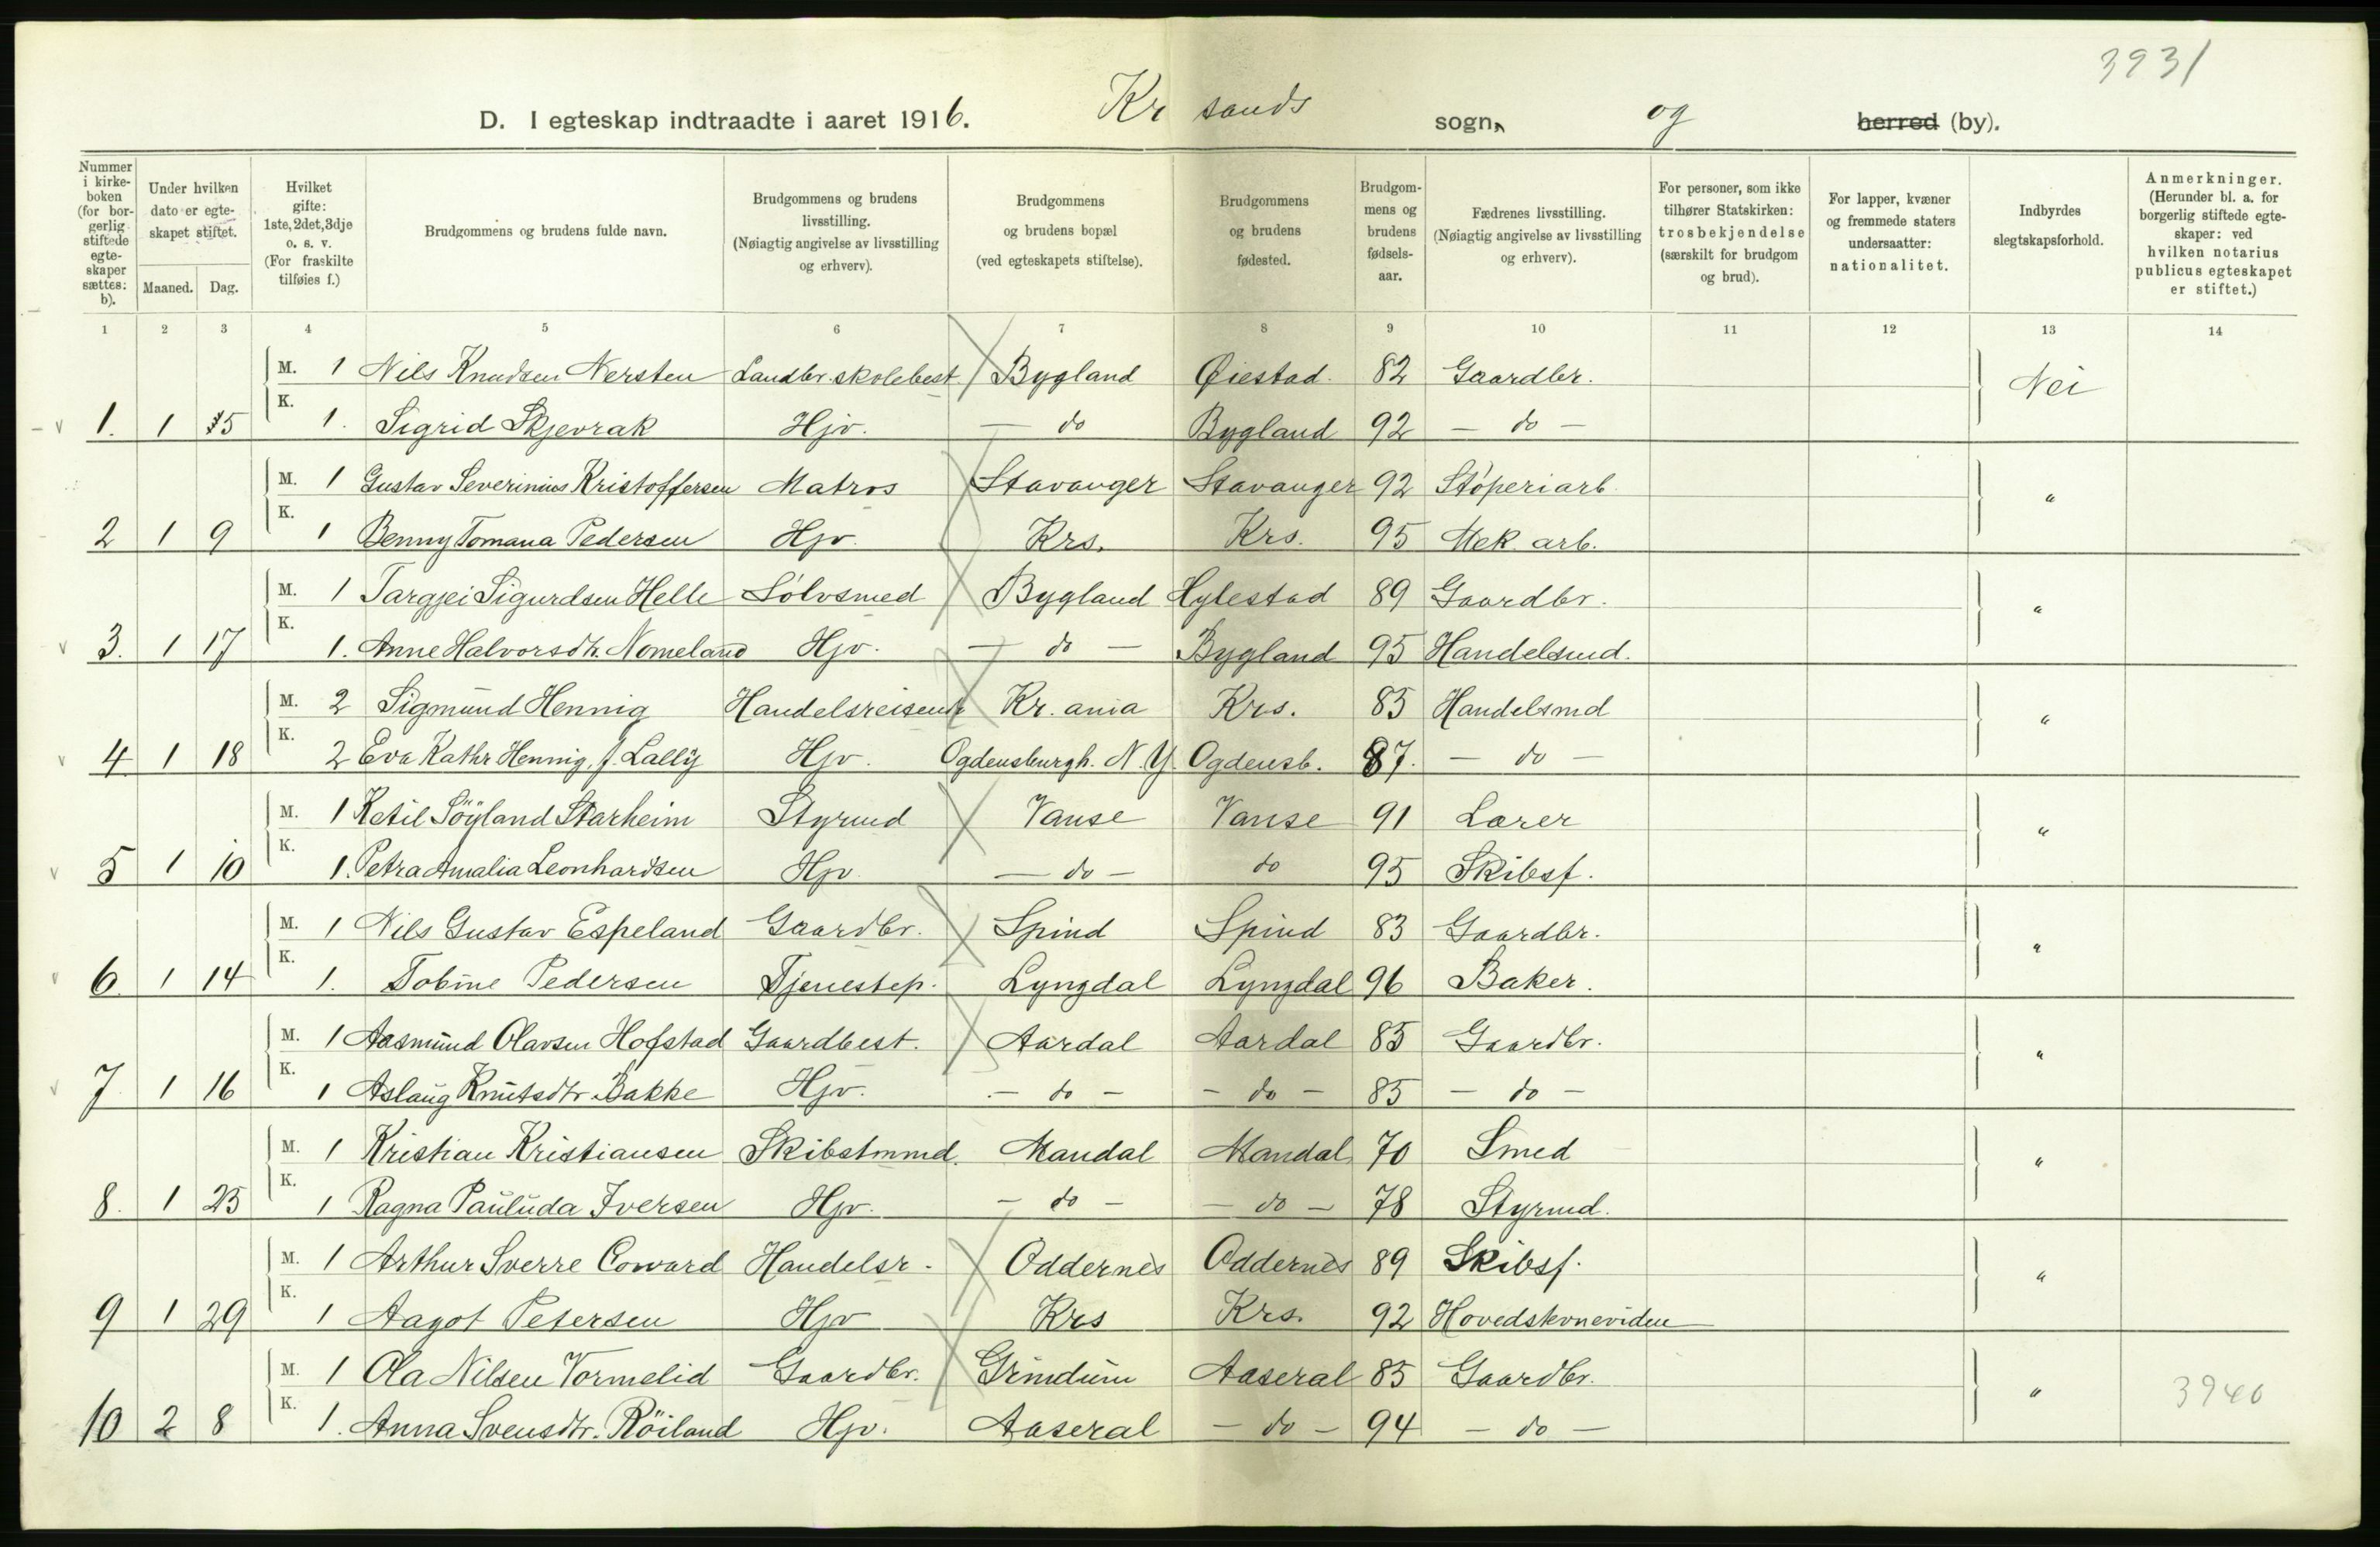 3931
D. I egteskap indtraadte i aaret 1916. Kr sands sogn, og herred (by).
Nummer i kirke-boken (for bor-gerlig stiftede egte-skaper sættes: b).
Under hvilken dato er egte-skapet stiftet.
Maaned. Dag.
Hvilket gifte: 1ste, 2det, 3dje o. s. v. (For fraskilte tilføies f.)
Brudgommens og brudens fulde navn.
Brudgommens og brudens livsstilling. (Nøiagtig angivelse av livsstilling og erhverv).
Brudgommens og brudens bopæl (ved egteskapets stiftelse).
Brudgommens og brudens fødested.
Brudgom-mens og brudens fødsels-aar.
Fædrenes livsstilling. (Nøiagtig angivelse av livsstilling og erhverv).
For personer, som ikke tilhører Statskirken: trosbekjendelse (særskilt for brudgom og brud).
For lapper, kvæner og fremmede staters undersaatter: nationalitet.
Indbyrdes slegtskapsforhold.
Anmerkninger. (Herunder bl. a. for borgerlig stiftede egte-skaper: ved hvilken notarius publicus egteskapet er stiftet.)
1 2 3 4 5 6 7 8 9 10 11 12 13 14
M. 1 Nils Knudsen Nersten Landbr.skolebest. Bygland Øiestad. 82 Gaardbr. Nei
1. 1 5 K. 1. Sigrid Skjevrak Hjv. — do Bygland 92 — do —
M. 1 Gustav Severinius Kristoffersen Matros Stavanger Stavanger 92 Støperiarb. "
2 1 9 K. 1 Benny Tomana Pedersen Hjv. Krs. Krs. 95 Mek. arb.
M. 1 Targjei Sigurdsen Helle Sølvsmed Bygland Hylestad 89 Gaardbr. "
3. 1 17 K. 1. Anne Halvorsdtr. Nomeland Hjv. — do — Bygland 95 Handelsmd.
M. 2 Sigmund Hennig Handelsreisende Kr.ania Krs. 85 Handelsmd "
4 1 18 K. 2 Eva Kathr Hennig, f. Lally Hjv. Ogdensburgh. N.Y. Ogdensb. 87. — do —
M. 1 Ketil Söyland Starheim Styrmd Vanse Vanse 91 Lærer "
5 1 10 K. 1. Petra Amalia Leonhardsen Hjv. — do — do 95 Skibsf.
M. 1 Nils Gustav Espeland Gaardbr. Spind Spind 83 Gaardbr. "
6. 1 14 K. 1. Tobine Pedersen Tjenestep. Lyngdal Lyngdal 96 Baker.
M. 1 Aasmund Olavsen Hofstad Gaardbest. Aardal Aardal 85 Gaardbr. "
7 1 16 K. 1 Aslaug Knutsdtr. Bakke Hjv. — do — — do — 85 — do —
M. 1 Kristian Kristiansen Skibstmmd. Mandal Mandal 70 Smed "
8. 1 25 K. 1 Ragna Pauluda Iversen Hjv. — do — — do — 78 Styrmd.
M. 1 Arthur Sverre Coward Handelsr. Oddernes Oddernes 89 Skibsf. "
9 1 29 K. 1 Aagot Petersen Hjv Krs Krs. 92
M. 1 Ola Nilsen Vormelid Gaardbr. Grindum Aaseral 85 Gaardbr. "
10 2 8 K. 1. Anna Svensdtr. Röiland Hjv. Aaseral — do — 94 — do — 3940